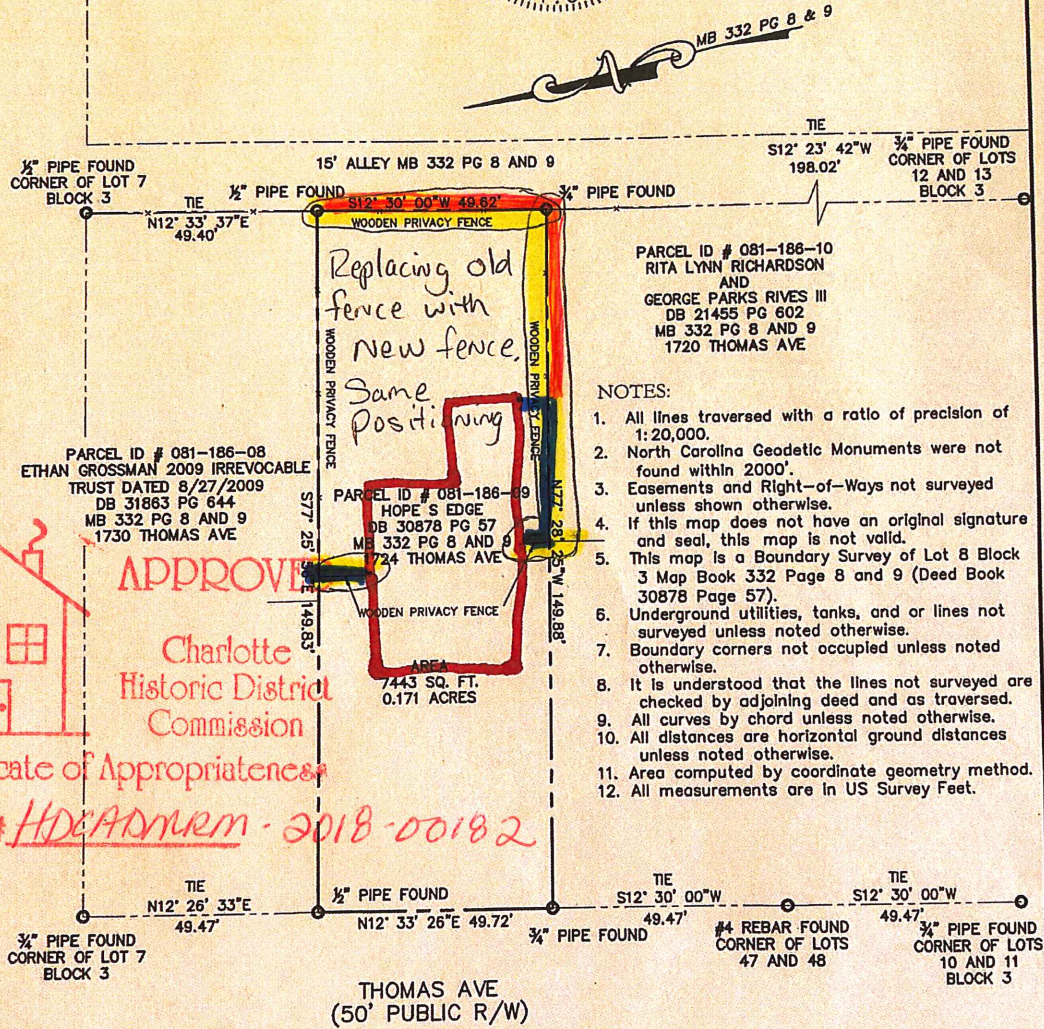 MB 332 PG 8 & 9
TIE
S12° 23' 42"W
198.02'
¾" PIPE FOUND
CORNER OF LOTS
12 AND 13
BLOCK 3
15' ALLEY MB 332 PG 8 AND 9
½" PIPE FOUND
CORNER OF LOT 7
BLOCK 3
TIE
N12° 33' 37"E
49.40'
½" PIPE FOUND
S12° 30' 00"W 49.62'
WOODEN PRIVACY FENCE
¾" PIPE FOUND
Replacing old
fence with
New fence.
Same
Positioning
WOODEN PRIVACY FENCE
WOODEN PRIVACY FENCE
PARCEL ID # 081-186-10
RITA LYNN RICHARDSON
AND
GEORGE PARKS RIVES III
DB 21455 PG 602
MB 332 PG 8 AND 9
1720 THOMAS AVE
PARCEL ID # 081-186-08
ETHAN GROSSMAN 2009 IRREVOCABLE
TRUST DATED 8/27/2009
DB 31863 PG 644
MB 332 PG 8 AND 9
1730 THOMAS AVE
PARCEL ID # 081-186-09
HOPE S EDGE
DB 30878 PG 57
MB 332 PG 8 AND 9
1724 THOMAS AVE
WOODEN PRIVACY FENCE
S77° 25' E 149.83'
N77° 28' 25"W 149.88'
AREA
7443 SQ. FT.
0.171 ACRES
NOTES:
1. All lines traversed with a ratio of precision of
1:20,000.
2. North Carolina Geodetic Monuments were not
found within 2000'.
3. Easements and Right-of-Ways not surveyed
unless shown otherwise.
4. If this map does not have an original signature
and seal, this map is not valid.
5. This map is a Boundary Survey of Lot 8 Block
3 Map Book 332 Page 8 and 9 (Deed Book
30878 Page 57).
6. Underground utilities, tanks, and or lines not
surveyed unless noted otherwise.
7. Boundary corners not occupied unless noted
otherwise.
8. It is understood that the lines not surveyed are
checked by adjoining deed and as traversed.
9. All curves by chord unless noted otherwise.
10. All distances are horizontal ground distances
unless noted otherwise.
11. Area computed by coordinate geometry method.
12. All measurements are in US Survey Feet.
APPROVE
Charlotte
Historic District
Commission
cate of Appropriateness
# HDCADMRM - 2018-00182
TIE
N12° 26' 33"E
49.47'
¾" PIPE FOUND
CORNER OF LOT 7
BLOCK 3
½" PIPE FOUND
N12° 33' 26"E 49.72'
¾" PIPE FOUND
TIE
S12° 30' 00"W
49.47'
#4 REBAR FOUND
CORNER OF LOTS
47 AND 48
TIE
S12° 30' 00"W
49.47'
¾" PIPE FOUND
CORNER OF LOTS
10 AND 11
BLOCK 3
THOMAS AVE
(50' PUBLIC R/W)